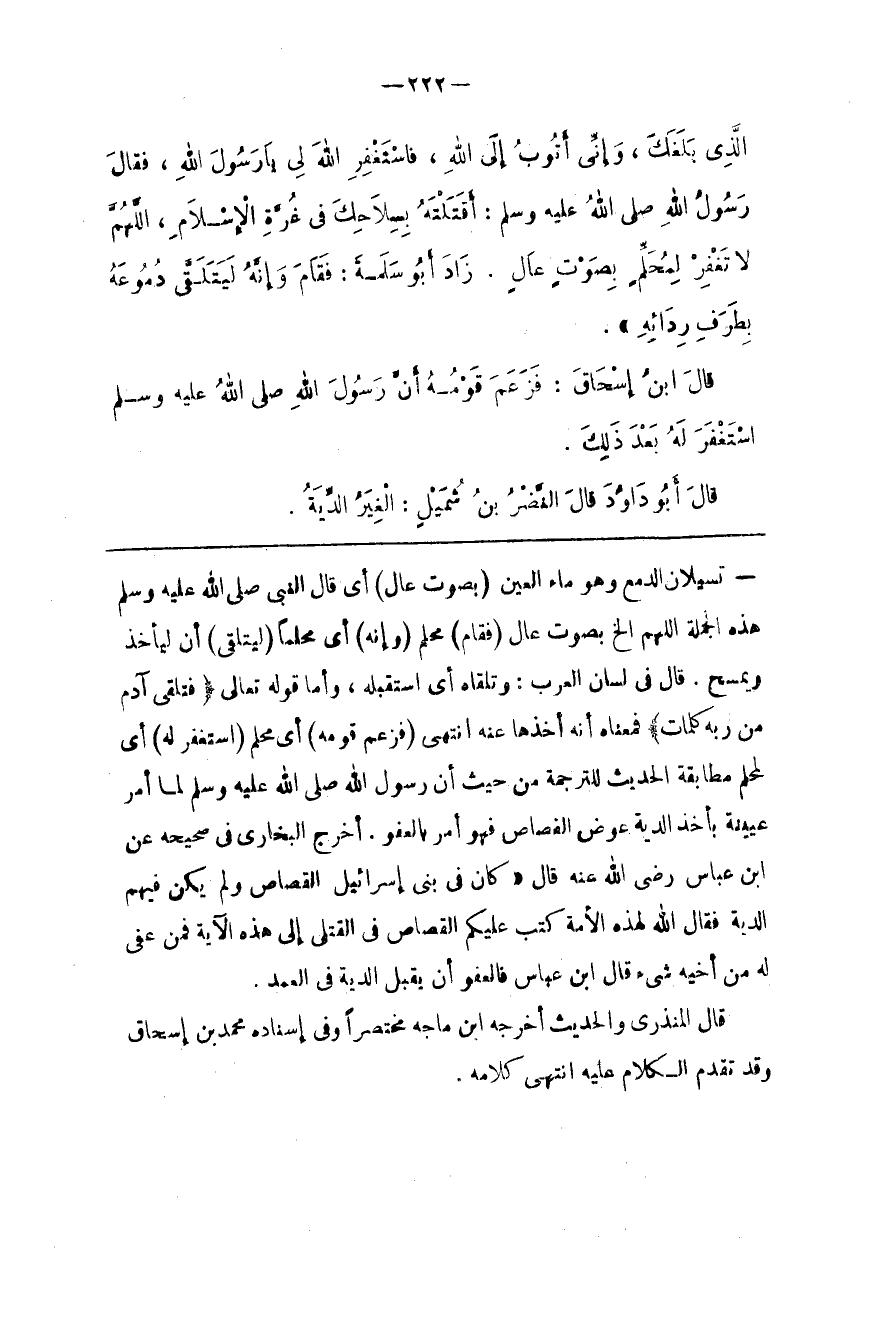 —٢٢٢—
الَّذِى بَلَغَكَ ، وَإِنِّى أَتُوبُ إِلَى اللهِ ، فاسْتَغْفِرِ اللهَ لِى يَارَسُولَ اللهِ ، فقالَ
رَسُولُ اللهِ صلى اللهُ عليه وسلم : أَقَتَلْتَهُ بِسِلَاحِكَ فى غُرَّةِ الْإِسْلَامِ ، اللَّهُمَّ
لا تَغْفِرْ لِمُحَلِّمٍ بِصَوْتٍ عالٍ . زَادَ أَبُو سَلَمَةَ : فَقَامَ وَإِنَّهُ لَيَتَلَقَّى دُمُوعَهُ
بِطَرَفِ رِدَائِهِ » .
قالَ ابنُ إِسْحَاقَ : فَزَعَمَ قَوْمُهُ أَنَّ رَسُولَ اللهِ صلى اللهُ عليه وسلم
اسْتَغْفَرَ لَهُ بَعْدَ ذَلِكَ .
قالَ أَبُو دَاوُدَ قالَ النَّضْرُ بنُ شُمَيْلٍ : الْغِيَرُ الدِّيَةُ .
— تسيلان الدمع وهو ماء العين (بصوت عال) أى قال النبى صلى الله عليه وسلم
هذه الجملة اللهم الخ بصوت عال (فقام) محلم (وإنه) أى محلماً (ليتلقى) أن ليأخذ
ويمسح . قال فى لسان العرب : وتلقاه أى استقبله ، وأما قوله تعالى ﴿ فتلقى آدم
من ربه كلمات﴾ فمعناه أنه أخذها عنه انتهى (فزعم قومه) أى محلم (استغفر له) أى
لمحلم مطابقة الحديث للترجمة من حيث أن رسول الله صلى الله عليه وسلم لما أمر
عيينة بأخذ الدية عوض القصاص فهو أمر بالعفو . أخرج البخارى فى صحيحه عن
ابن عباس رضى الله عنه قال « كان فى بنى إسرائيل القصاص ولم يكن فيهم
الدية فقال الله لهذه الأمة كتب عليكم القصاص فى القتلى إلى هذه الآية فمن عفى
له من أخيه شىء قال ابن عباس فالعفو أن يقبل الدية فى العمد .
قال المنذرى والحديث أخرجه ابن ماجه مختصراً وفى إسناده محمد بن إسحاق
وقد تقدم الكلام عليه انتهى كلامه .